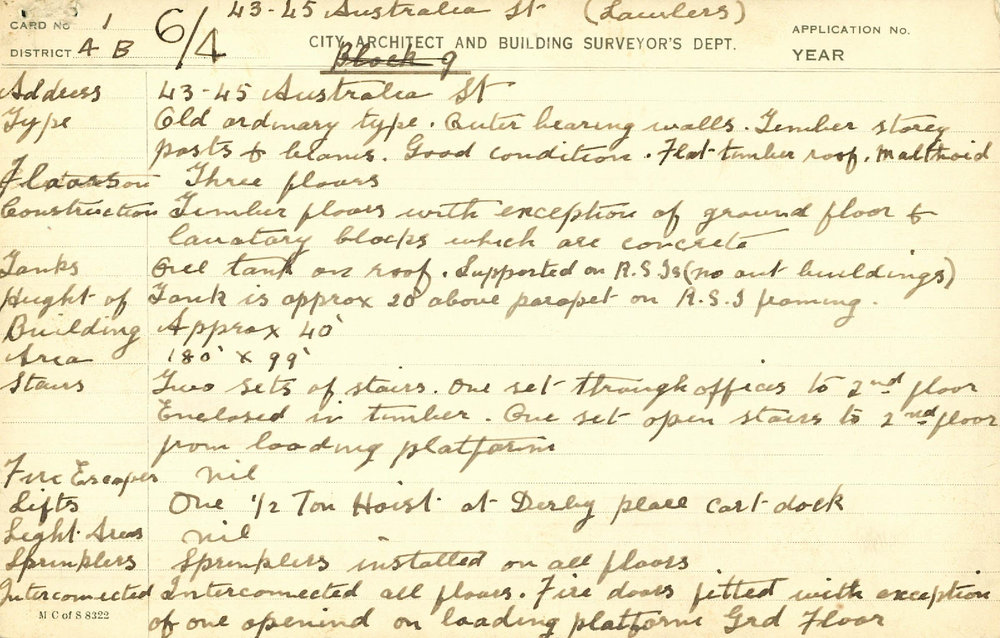 43-45 Australia St (Lawlers)
CARD No 1
DISTRICT A B
6/4
CITY ARCHITECT AND BUILDING SURVEYOR'S DEPT.
Block 9
APPLICATION No.
YEAR
Address 43-45 Australia St
Type Old ordinary type. Outer bearing walls. Timber storey
posts & beams. Good condition. Flat timber roof. Malthoid
Floors Three floors
Construction Timber floors with exception of ground floor &
lavatory blocks which are concrete
Tanks One tank on roof. Supported on R.S.Js (no out buildings)
Hught of Tank is approx 20' above parapet on R.S.J framing.
Building Approx 40'
Area 180' x 99'
Stairs Two sets of stairs. One set through offices to 2nd floor
Enclosed in timber. One set open stairs to 2nd floor
from loading platform
Fire Escapes nil
Lifts One 1/2 Ton Hoist at Derby place cart dock
Light Areas nil
Sprinklers Sprinklers installed on all floors
Interconnected Interconnected all floors. Fire doors fitted with exception
of one openind on loading platform Grd Floor
M C of S 8322